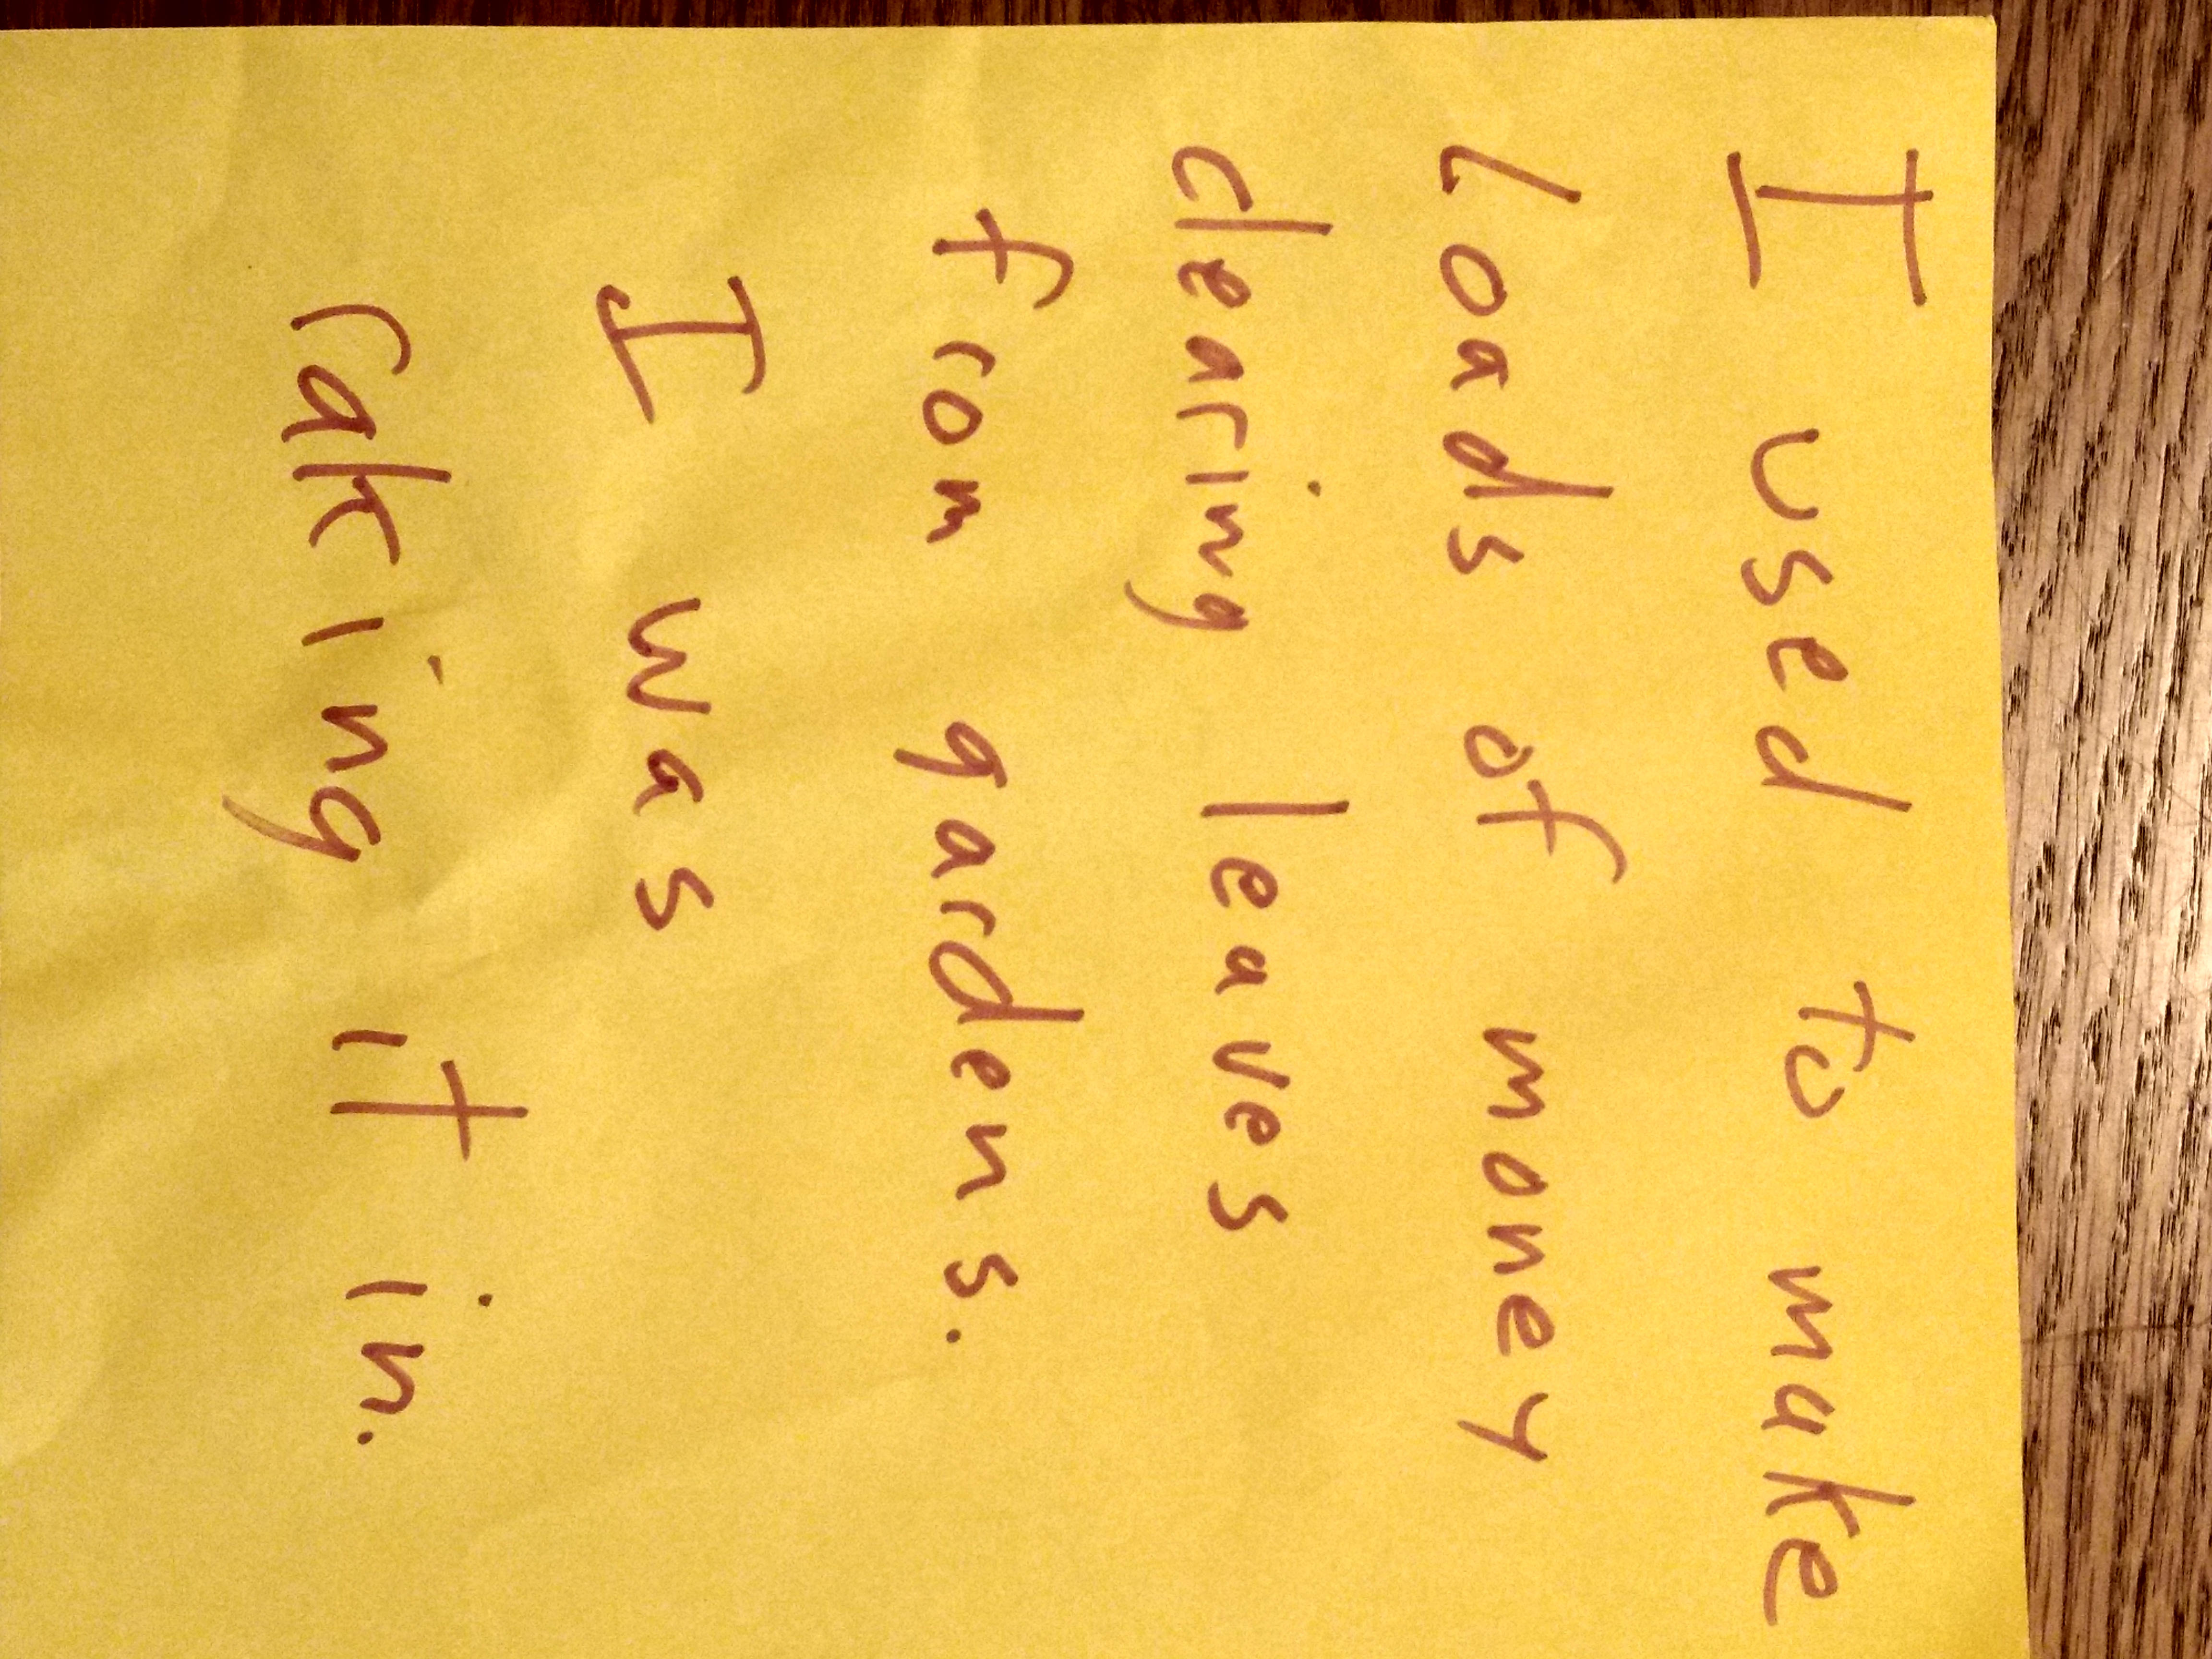 I used to make
Loads of money
clearing leaves
from gardens.
I was
raking it in.